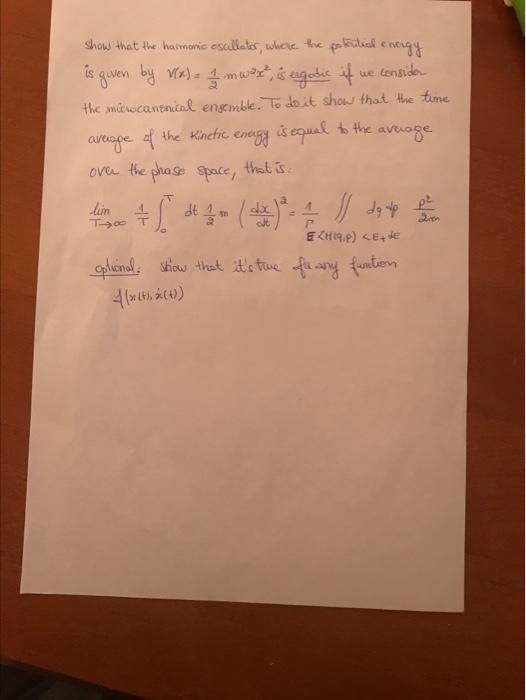 Show that the harmonic oscillator, where the potential energy
is given by V(x) = 1/2 m ω² x², is ergodic if we consider
the microcanonical ensemble. To do it show that the time
average of the kinetic energy is equal to the average
over the phase space, that is:
lim T→∞ 1/T ∫₀ᵀ dt 1/2 m (dx/dt)² = 1/Γ ∬ E<H(q,p)<E+dE dq dp p²/2m
optional: show that it's true for any function
f(x(t), ẋ(t))